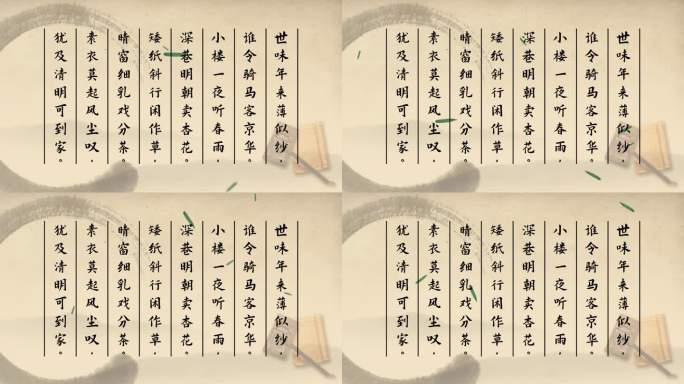 世味年来薄似纱，
谁令骑马客京华。
小楼一夜听春雨，
深巷明朝卖杏花。
矮纸斜行闲作草，
晴窗细乳戏分茶。
素衣莫起风尘叹，
犹及清明可到家。
世味年来薄似纱，
谁令骑马客京华。
小楼一夜听春雨，
深巷明朝卖杏花。
矮纸斜行闲作草，
晴窗细乳戏分茶。
素衣莫起风尘叹，
犹及清明可到家。
世味年来薄似纱，
谁令骑马客京华。
小楼一夜听春雨，
深巷明朝卖杏花。
矮纸斜行闲作草，
晴窗细乳戏分茶。
素衣莫起风尘叹，
犹及清明可到家。
世味年来薄似纱，
谁令骑马客京华。
小楼一夜听春雨，
深巷明朝卖杏花。
矮纸斜行闲作草，
晴窗细乳戏分茶。
素衣莫起风尘叹，
犹及清明可到家。